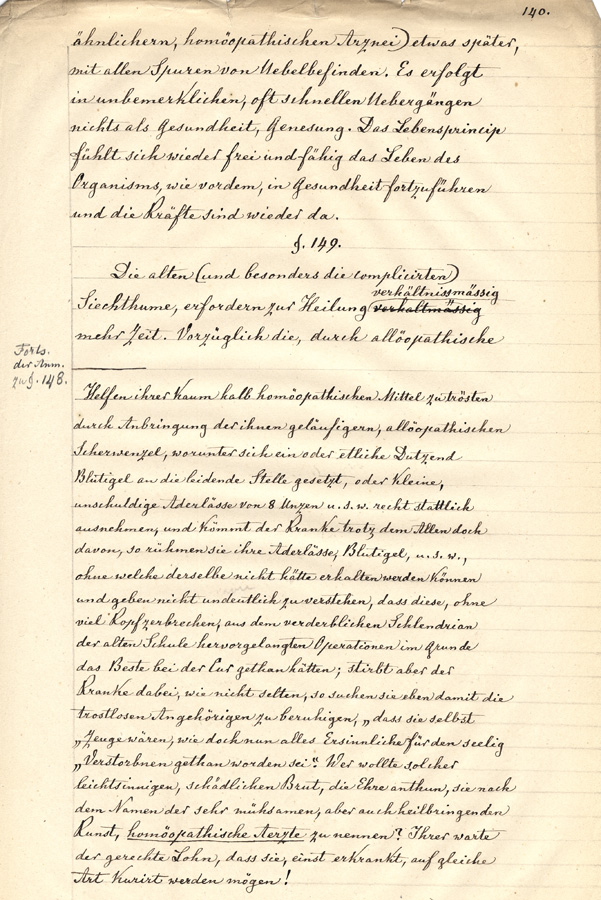 140.
ähnlichern, homöopathischen Arznei) etwas später,
mit allen Spuren von Uebelbefinden. Es erfolgt
in unbemerklichen, oft schnellen Uebergängen
nichts als Gesundheit, Genesung. Das Lebensprincip
fühlt sich wieder frei und fähig das Leben des
Organisms, wie vordem, in Gesundheit fortzuführen
und die Kräfte sind wieder da.
§. 149.
Die alten (und besonders die complicirten)
verhältnissmässig
Siechthume, erfordern zur Heilung verhaltmässig
mehr Zeit. Vorzüglich die, durch allöopathische
Forts.
der Anm.
zu §. 148.
Helfen ihrer kaum halb homöopathischen Mittel zu trösten
durch Anbringung der ihnen geläufigern, allöopathischen
Scherwenzel, worunter sich ein oder etliche Dutzend
Blutigel an die leidende Stelle gesetzt, oder kleine,
unschuldige Aderlässe von 8 Unzen u. s. w. recht stattlich
ausnehmen, und kömmt der Kranke trotz dem Allen doch
davon, so rühmen sie ihre Aderlässe, Blutigel, u. s. w.,
ohne welche derselbe nicht hätte erhalten werden können
und geben nicht undeutlich zu verstehen, dass diese, ohne
viel Kopfzerbrechen, aus dem verderblichen Schlendrian
der alten Schule hervorgelangten Operationen im Grunde
das Beste bei der Cur gethan hätten; stirbt aber der
Kranke dabei, wie nicht selten, so suchen sie eben damit die
trostlosen Angehörigen zu beruhigen, „dass sie selbst
„Zeuge wären, wie doch nun alles Ersinnliche für den seelig
„Verstorbnen gethan worden sei“. Wer wollte solcher
leichtsinnigen, schädlichen Brut, die Ehre anthun, sie nach
dem Namen der sehr mühsamen, aber auch heilbringenden
Kunst, homöopathische Aerzte zu nennen? Ihrer warte
der gerechte Lohn, dass sie, einst erkrankt, auf gleiche
Art kurirt werden mögen!